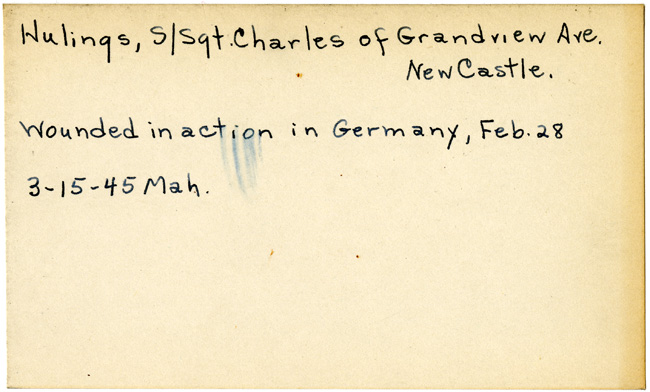 Hulings, S/Sgt. Charles of Grandview Ave.
New Castle.
Wounded in action in Germany, Feb. 28
3-15-45 Mah.